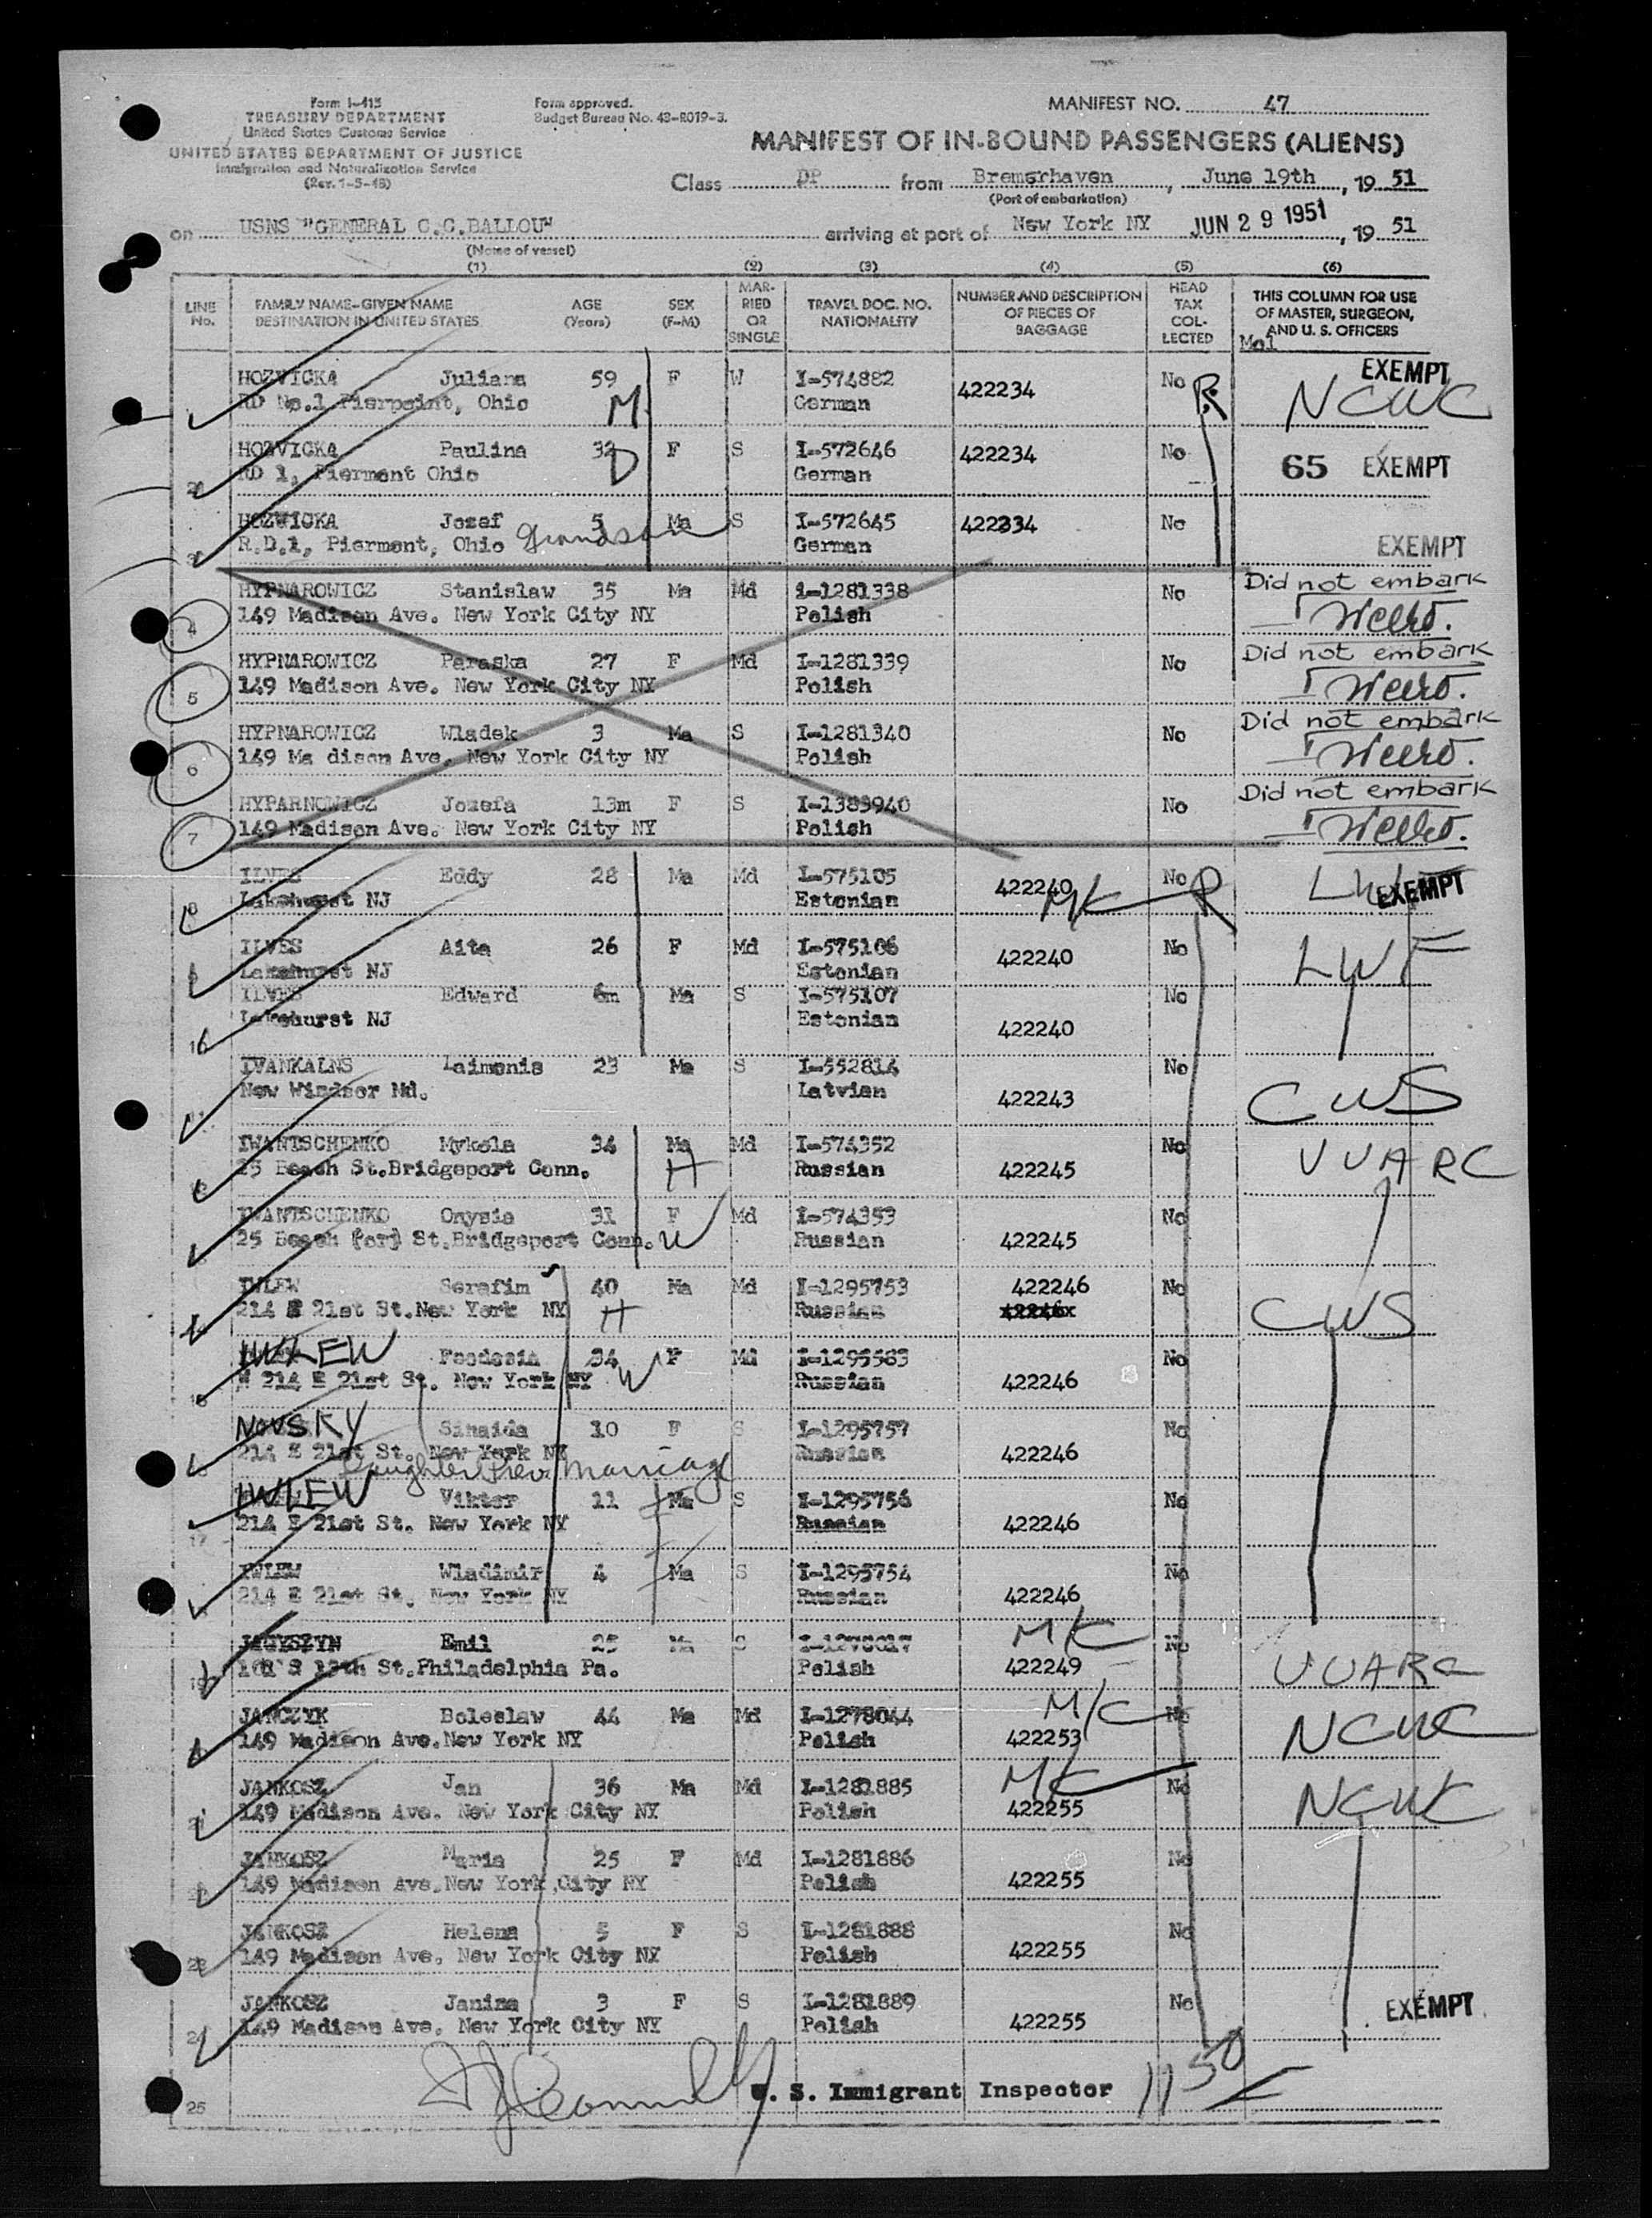 Form I-415
TREASURY DEPARTMENT
United States Customs Service
UNITED STATES DEPARTMENT OF JUSTICE
Immigration and Naturalization Service
(Rev. 1-5-48)
Form approved.
Budget Bureau No. 43-R019-3.
MANIFEST NO. 47
MANIFEST OF IN-BOUND PASSENGERS (ALIENS)
Class DP from Bremerhaven, June 19th, 19 51
(Port of embarkation)
on USNS "GENERAL C.C.BALLOU" arriving at port of New York NY JUN 29 1951, 19 51
(Name of vessel)
(1) (2) (3) (4) (5) (6)
LINE No.
FAMILY NAME-GIVEN NAME DESTINATION IN UNITED STATES
AGE (Years)
SEX (F-M)
MARRIED OR SINGLE
TRAVEL DOC. NO. NATIONALITY
NUMBER AND DESCRIPTION OF PIECES OF BAGGAGE
HEAD TAX COLLECTED
THIS COLUMN FOR USE OF MASTER, SURGEON, AND U. S. OFFICERS
HOZWICKA Juliana 59 F W I-574882 422234 No R EXEMPT
RD No.1 Pierpoint, Ohio M German NCWC
HOZWICKA Paulina 32 F S I-572646 422234 No
RD 1, Piermont Ohio D German 65 EXEMPT
HOZWICKA Jozef 5 Ma S I-572645 422234 No
R.D.1, Piermont, Ohio Grandson German EXEMPT
4 HYPNAROWICZ Stanislaw 35 Ma Md I-1281338 No Did not embark
149 Madison Ave. New York City NY Polish
5 HYPNAROWICZ Paraska 27 F Md I-1281339 No Did not embark
149 Madison Ave. New York City NY Polish
6 HYPNAROWICZ Wladek 3 Ma S I-1281340 No Did not embark
149 Ma dison Ave. New York City NY Polish
7 HYPARNOWICZ Jozefa 13m F S I-1383940 No Did not embark
149 Madison Ave. New York City NY Polish
8 ILVES Eddy 28 Ma Md I-575105 422240 No R EXEMPT
Lakehurst NJ Estonian
ILVES Aita 26 F Md I-575106 422240 No LWF
Lakehurst NJ Estonian
10 ILVES Edward 6m Ma S I-575107 422240 No
Lakehurst NJ Estonian
IWANKALNS Laimonis 23 Ma S I-552814 422243 No
New Windsor Md. Latvian CWS
IWANTSCHENKO Mykola 34 Ma Md I-574352 No
25 Beach St.Bridgeport Conn. H Russian 422245 UUARC
IWANTSCHENKO Onysia 31 F Md I-574353 No
25 Beach (or) St.Bridgeport Conn. W Russian 422245
IWLEW Serafim 40 Ma Md I-1295753 422246 No
214 E 21st St.New York NY H Russian CWS
IWLEW Feodosia 34 F Md I-1295583 No
214 E 21st St. New York NY W Russian 422246
NOVSKY Sinaida 10 F S I-1295757 No
214 E 21st St. New York NY Russian 422246
daughter Prev Marriage
IWLEW Viktor 11 Ma S I-1295756 No
214 E 21st St. New York NY Russian 422246
IWLEW Wladimir 4 Ma S I-1295754 No
214 E 21st St. New York NY Russian 422246
JACYSZYN Emil 25 Ma S M/C No
St.Philadelphia Pa. Polish 422249 UUARC
JANCZYK Boleslaw 44 Ma Md I-1278044 M/C No
149 Madison Ave.New York NY Polish 422253 NCWC
JANKOSZ Jan 36 Ma Md I-1281885 No
149 Madison Ave. New York City NY Polish 422255 NCWC
JANKOSZ Maria 25 F Md I-1281886 No
149 Madison Ave.New York City NY Polish 422255
JANKOSZ Helena 5 F S I-1281888 No
149 Madison Ave. New York City NY Polish 422255
JANKOSZ Janina 3 F S I-1281889 No EXEMPT
149 Madison Ave. New York City NY Polish 422255
U. S. Immigrant Inspector 1150
25